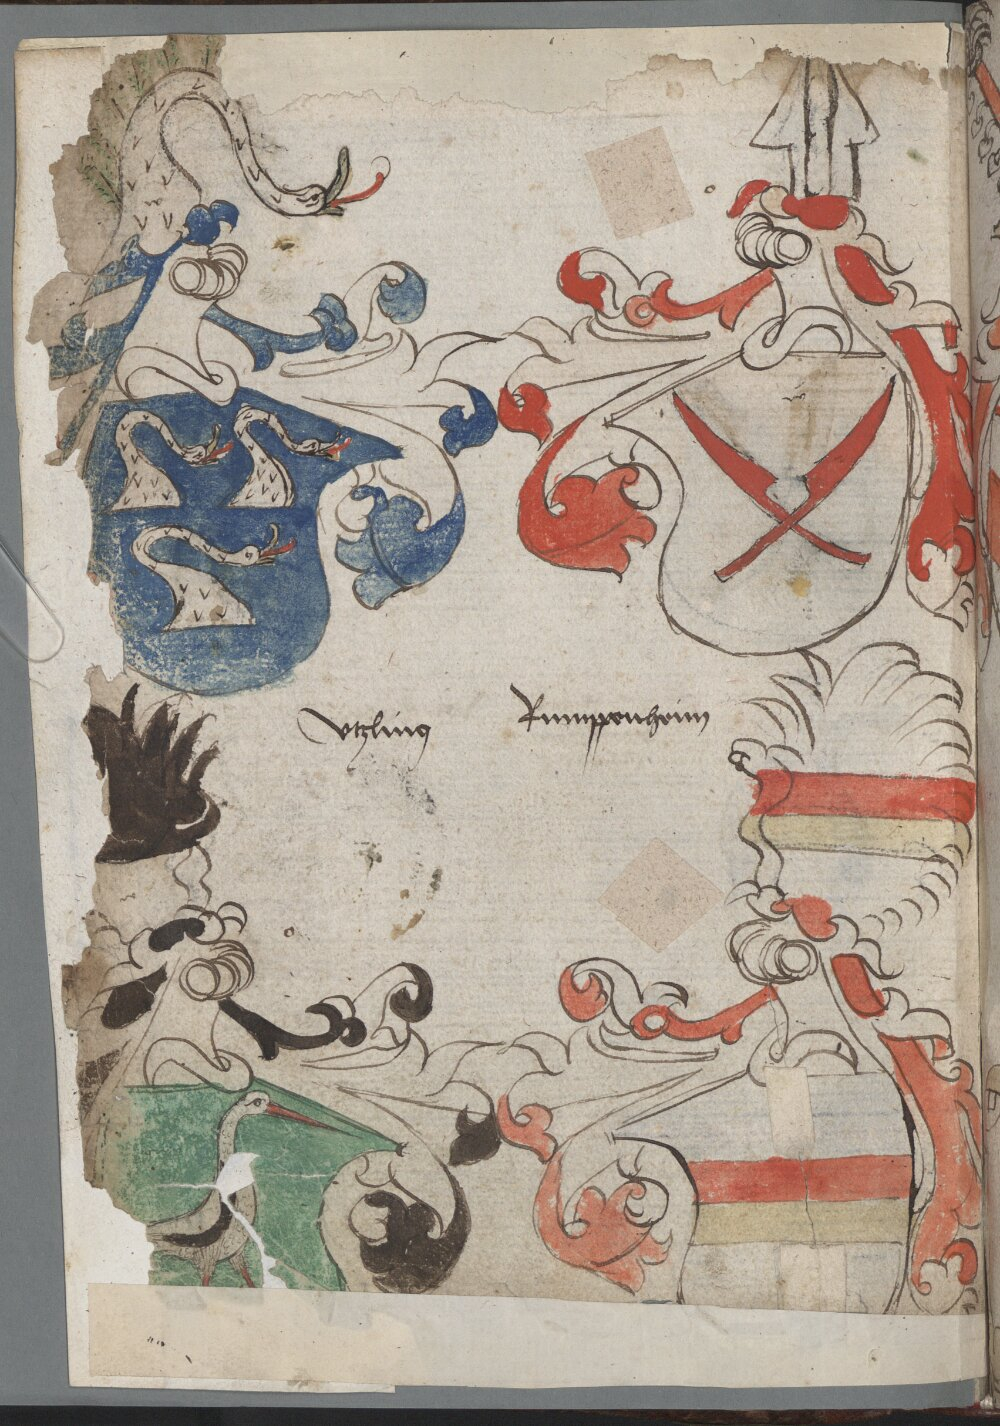 Vtzling
Rumppenheim